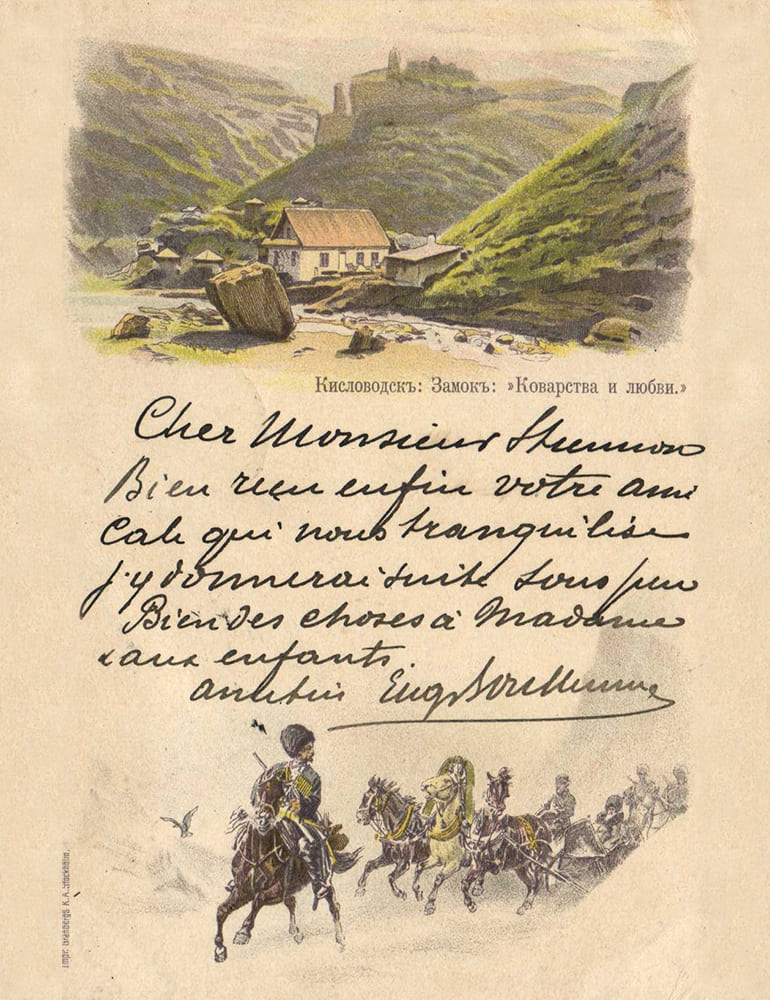 Кисловодскъ: Замокъ: »Коварства и любви.»
Cher Monsieur
Bien reçu enfin votre ami
cale qui nous tranquilise
j'y donnerai suite sous peu
Bien des choses à Madame
& aux enfants.
Eug
Impr. Granbergs K. A. Stockholm.